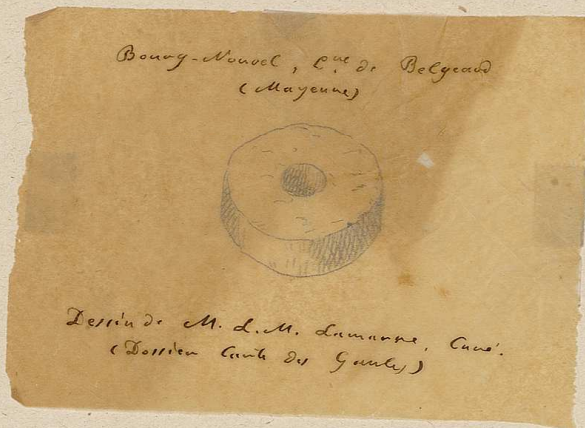 Bourg-Nouvel, Cne de Belgeard
(Mayenne)
Dessin de M. L. M. Lamarre, Curé.
(Dossier Carte des Gaules)